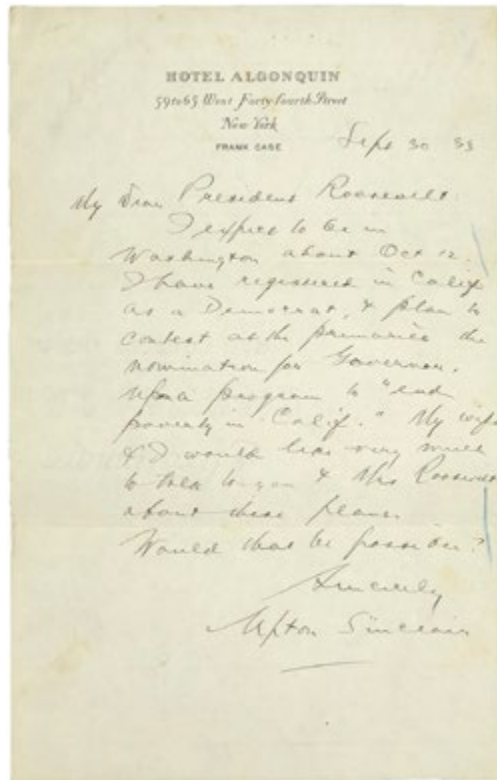 HOTEL ALGONQUIN
59 to 65 West Forty-fourth Street
New York
FRANK CASE
Sept 30 33
My Dear President Roosevelt
I expect to be in
Washington about Oct 12.
I have registered in Calif
as a Democrat, & plan to
contest at the primaries the
nomination for Governor,
upon a program to "end
poverty in Calif." My wife
& I would like very much
to talk to you & Mrs Roosevelt
about these plans.
Would that be possible?
Sincerely
Upton Sinclair